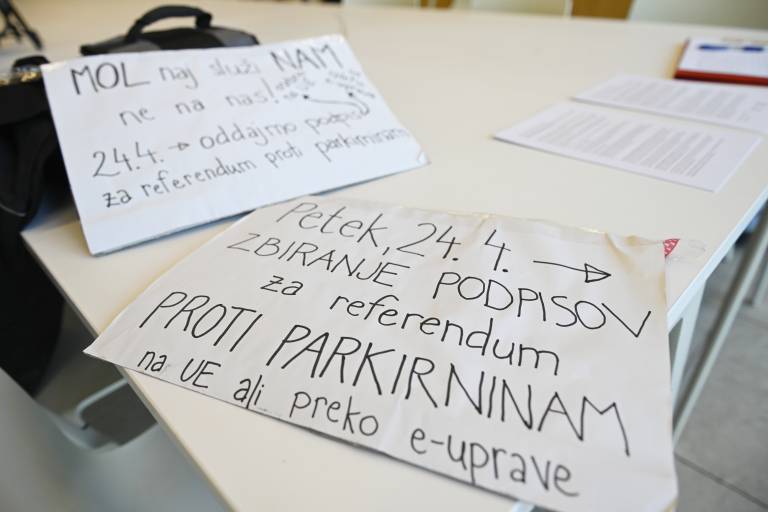 MOL naj služi NAM
ne na nas!
24.4. → oddajmo podpis
za referendum proti parkirninam
Petek, 24. 4. →
ZBIRANJE PODPISOV
za referendum
PROTI PARKIRNINAM
na UE ali preko e-uprave